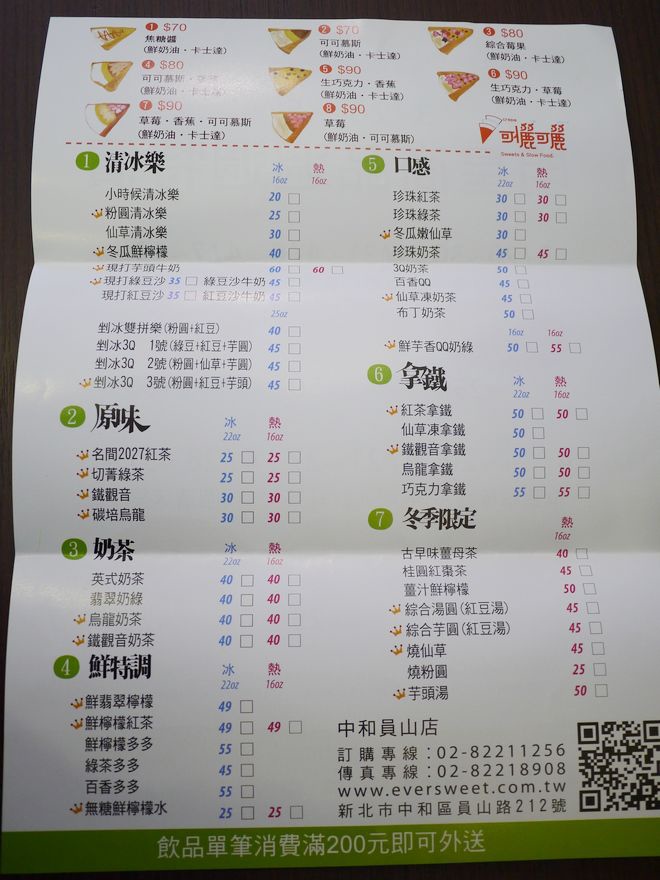 1 $70
焦糖醬
(鮮奶油・卡士達)
2 $70
可可慕斯
(鮮奶油・卡士達)
3 $80
綜合莓果
(鮮奶油・卡士達)
4 $80
可可慕斯・
(鮮奶油・卡士達)
5 $90
生巧克力・香蕉
(鮮奶油・卡士達)
6 $90
生巧克力・草莓
(鮮奶油・卡士達)
7 $90
草莓・香蕉・可可慕斯
(鮮奶油・卡士達)
8 $90
草莓
(鮮奶油・可可慕斯)
可麗可麗
Sweets & Slow Food
1 清冰樂 冰 熱
16oz 16oz
小時候清冰樂 20
粉圓清冰樂 25
仙草清冰樂 30
冬瓜鮮檸檬 40
現打芋頭牛奶 60 60
現打綠豆沙 35 綠豆沙牛奶 45
現打紅豆沙 35 紅豆沙牛奶 45
25oz
剉冰雙拼樂(粉圓+紅豆) 40
剉冰3Q 1號(綠豆+紅豆+芋圓) 45
剉冰3Q 2號(粉圓+仙草+芋圓) 45
剉冰3Q 3號(粉圓+紅豆+芋頭) 45
2 原味 冰 熱
22oz 16oz
名間2027紅茶 25 25
切菁綠茶 25 25
鐵觀音 30 30
碳培烏龍 30 30
3 奶茶 冰 熱
22oz 16oz
英式奶茶 40 40
翡翠奶綠 40 40
烏龍奶茶 40 40
鐵觀音奶茶 40 40
4 鮮特調 冰 熱
22oz 16oz
鮮翡翠檸檬 49
鮮檸檬紅茶 49 49
鮮檸檬多多 55
綠茶多多 45
百香多多 55
無糖鮮檸檬水 25 25
5 口感 冰 熱
22oz 16oz
珍珠紅茶 30 30
珍珠綠茶 30 30
冬瓜嫩仙草 30
珍珠奶茶 45 45
3Q奶茶 50
百香QQ 45
仙草凍奶茶 45
布丁奶茶 50
16oz 16oz
鮮芋香QQ奶綠 50 55
6 拿鐵 冰 熱
22oz 16oz
紅茶拿鐵 50 50
仙草凍拿鐵 50
鐵觀音拿鐵 50 50
烏龍拿鐵 50 50
巧克力拿鐵 55 55
7 冬季限定 熱
16oz
古早味薑母茶 40
桂圓紅棗茶 45
薑汁鮮檸檬 50
綜合湯圓(紅豆湯) 45
綜合芋圓(紅豆湯) 45
燒仙草 45
燒粉圓 25
芋頭湯 50
中和員山店
訂購專線：02-82211256
傳真專線：02-82218908
www.eversweet.com.tw
新北市中和區員山路212號
飲品單筆消費滿200元即可外送